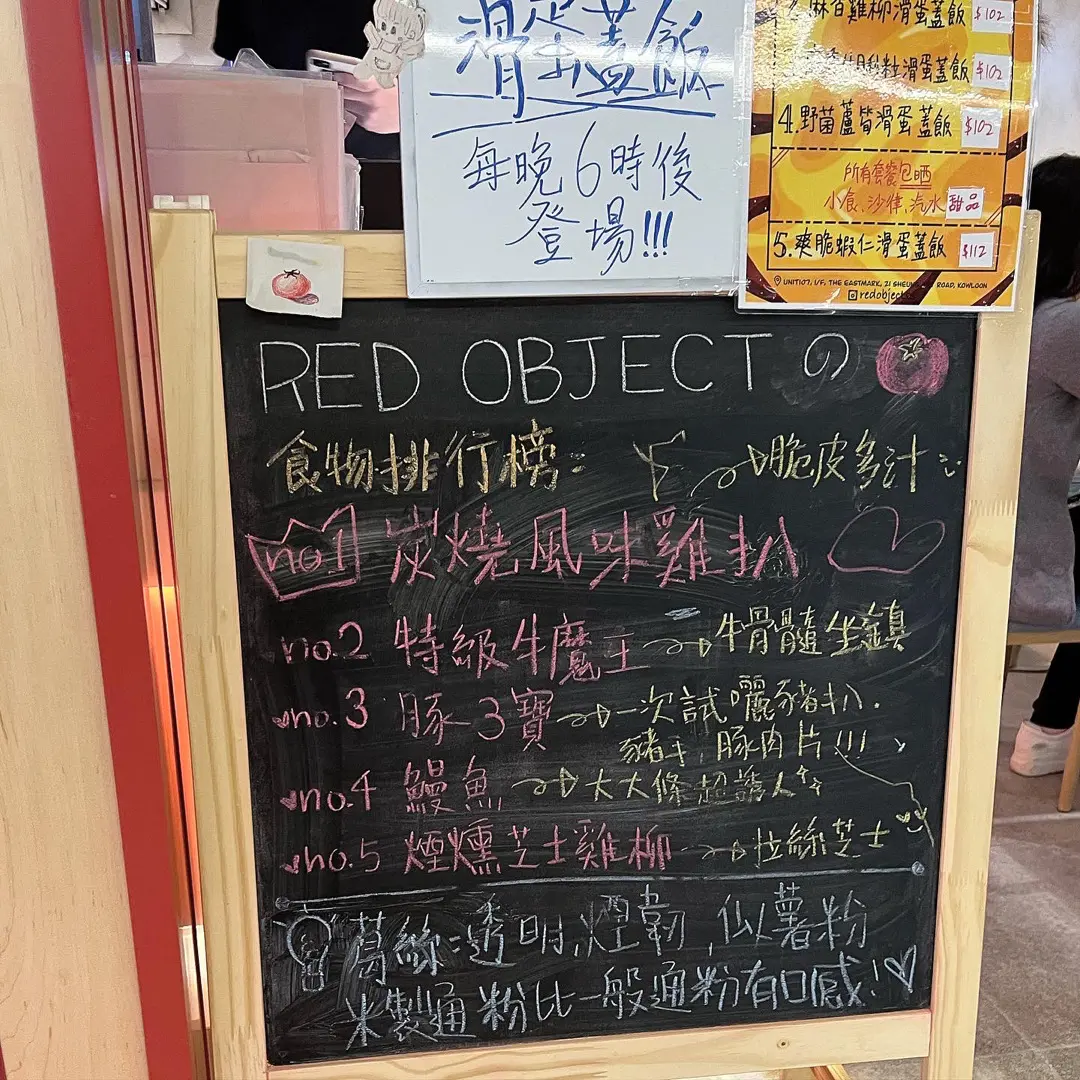 滑蛋蓋飯
每晚6時後
登場!!!
麻百雞柳滑蛋蓋飯 $102
滑蛋蓋飯 $102
4.野菌蘆筍滑蛋蓋飯 $102
所有套餐包晒
小食、沙律、汽水 甜品
5.爽脆蝦仁滑蛋蓋飯 $112
UNIT107, 1/F, THE EASTMARK, 21 SHEUNG ROAD, KOWLOON
redobject
RED OBJECT の
食物排行榜: 脆皮多汁
no.1 炭燒風味雞扒
no.2 特級牛魔王 牛骨髓坐鎮
no.3 豚3寶 一次試嚦豬扒.
豬手,豚肉片!!!
no.4 鰻魚 大大條超誘人
no.5 煙燻芝士雞柳 拉絲芝士
葛絲:透明,煙韌,似薯粉
米製通粉比一般通粉有口感!